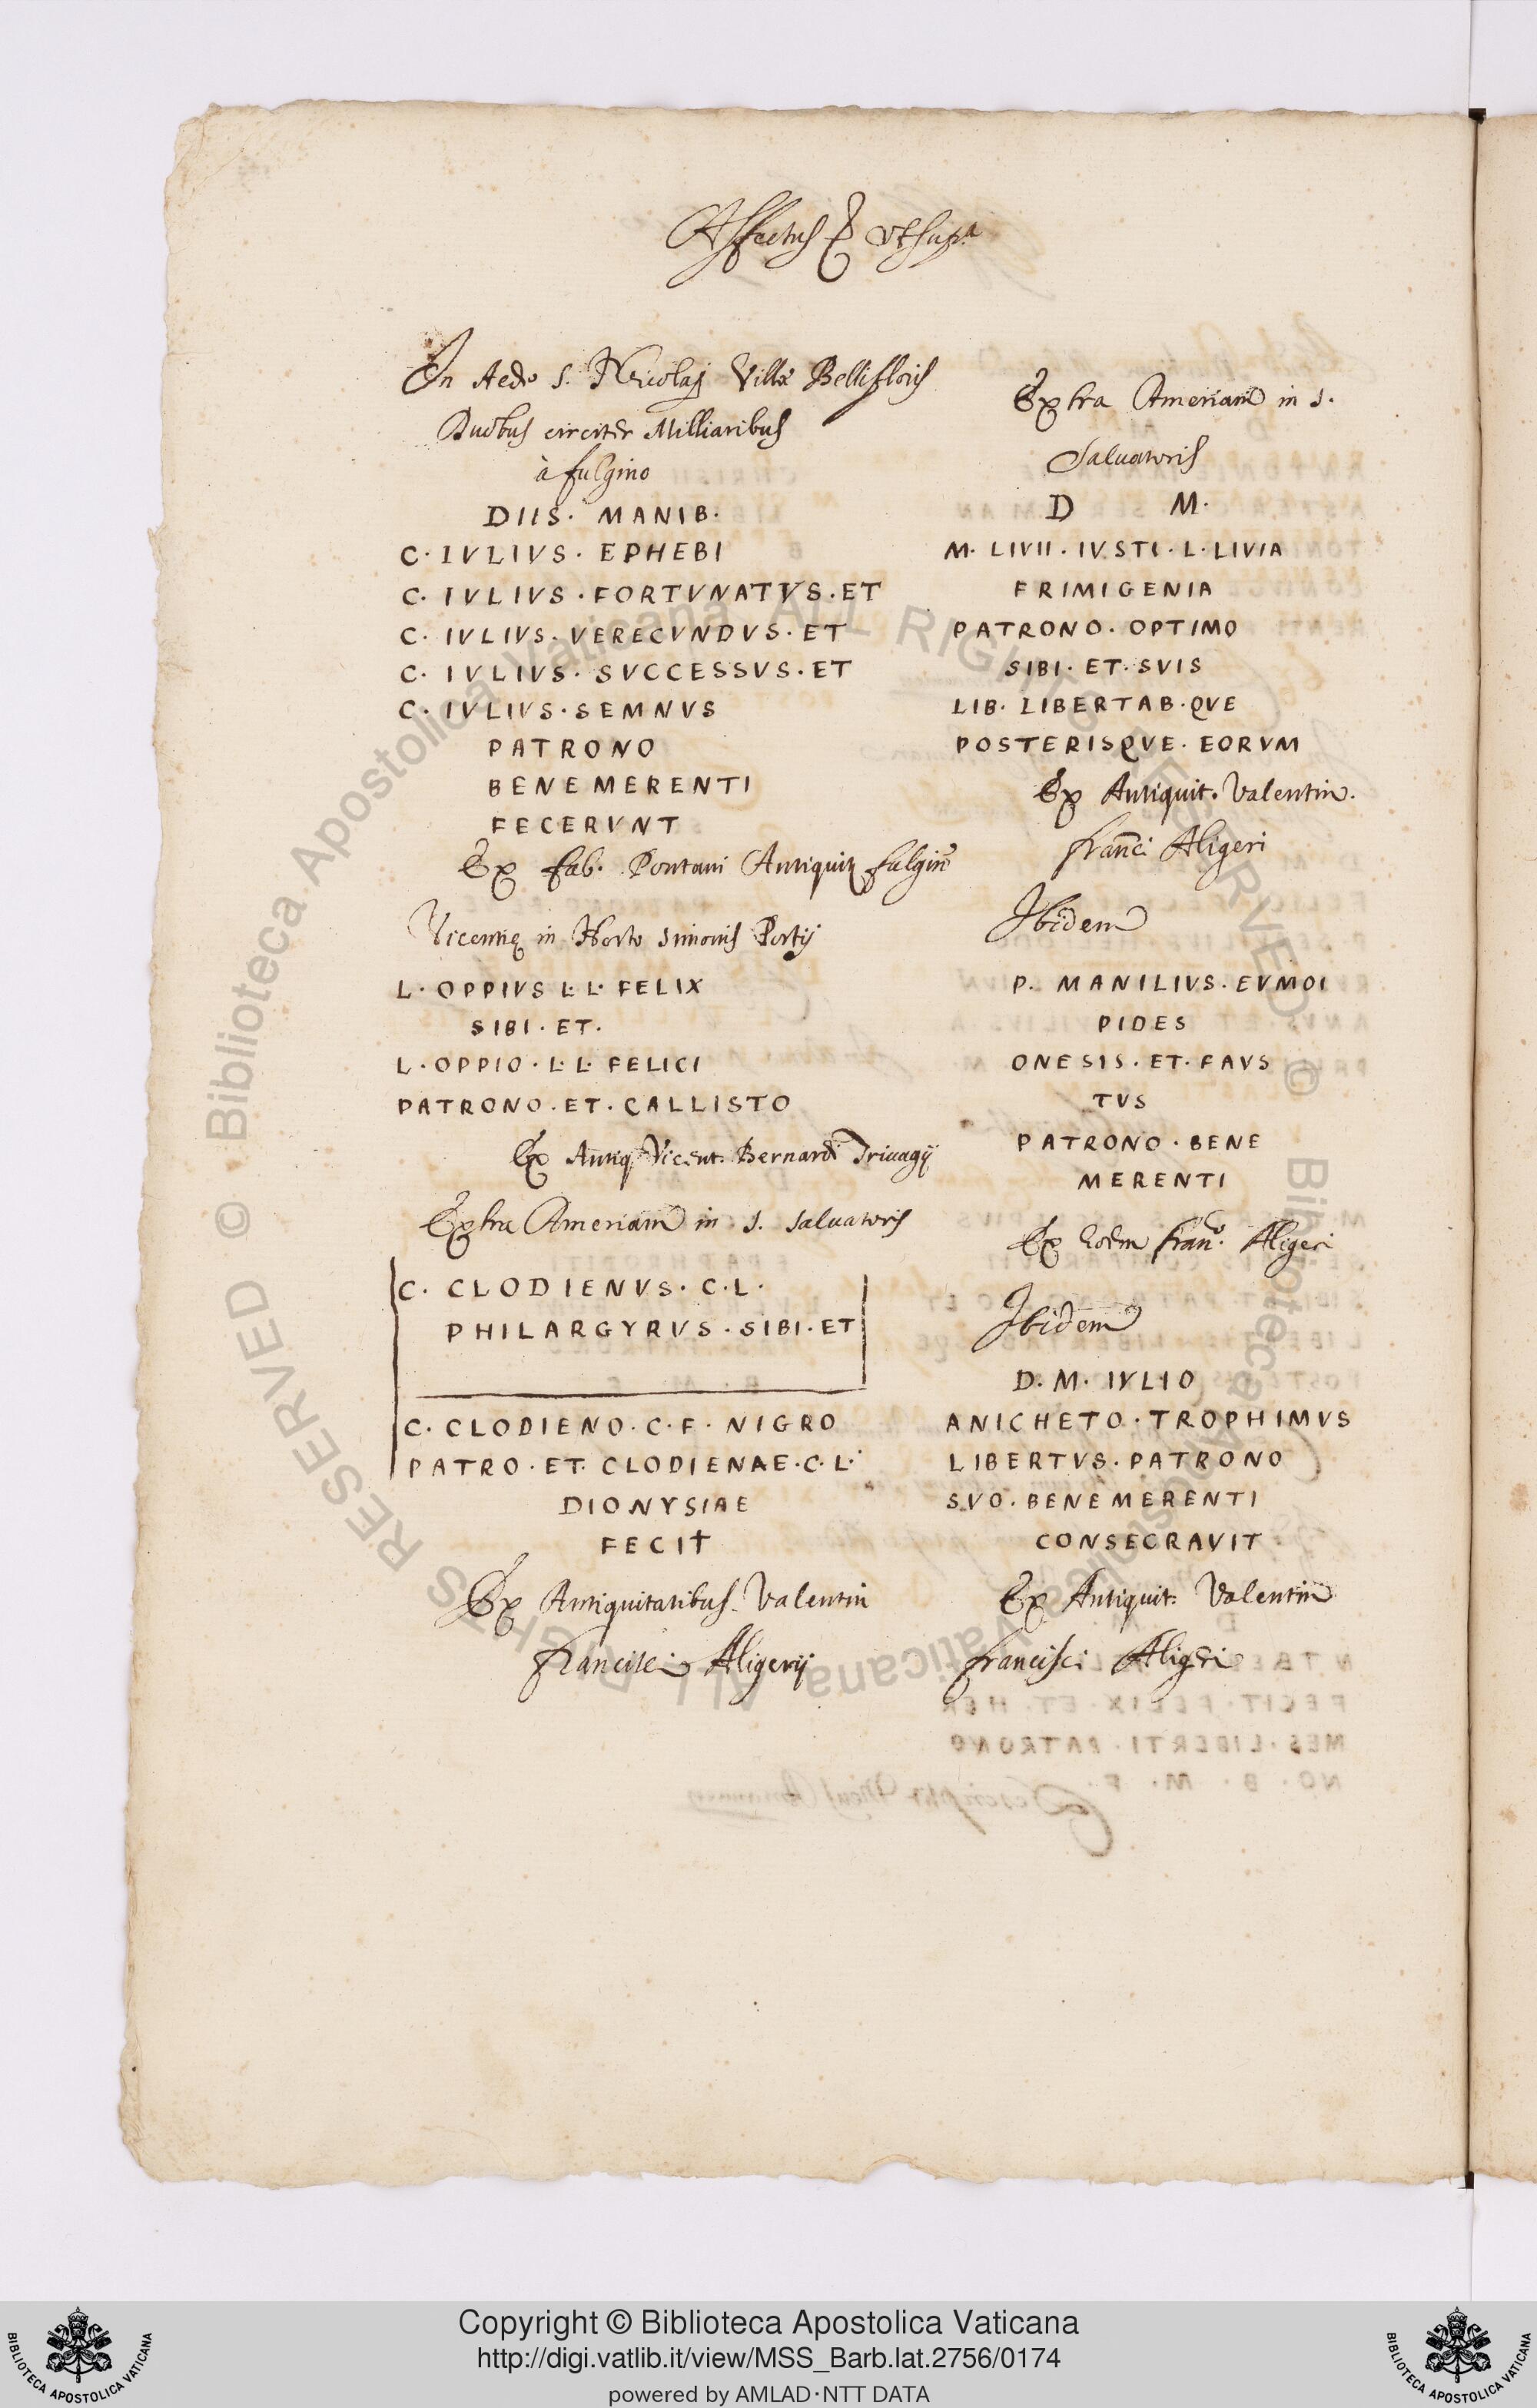 Affectus & ut sup.a
In Aede S. Nicolaj Villæ Bellifloris
Duobus circiter Milliaribus
à fulgino
DIIS. MANIB.
C. IVLIVS. EPHEBI
C. IVLIVS. FORTVNATVS. ET
C. IVLIVS. VERECVNDVS. ET
C. IVLIVS. SVCCESSVS. ET
C. IVLIVS. SEMNVS
PATRONO
BENE MERENTI
FECERVNT
Ex fab. Pontani Antiquit fulgin
Vicentię in Horto Simonis Portij
L. OPPIVS L. L. FELIX
SIBI. ET.
L. OPPIO. L. L. FELICI
PATRONO. ET. CALLISTO
Ex Antiq. Vicent. Bernardi Triuagij
Extra Ameriam in S. Saluatoris
C. CLODIENVS. C. L.
PHILARGYRVS. SIBI. ET
C. CLODIENO. C. F. NIGRO
PATRO. ET. CLODIENAE. C. L.
DIONYSIAE
FECIT
Ex Antiquitatibus Valentin
francisci Aligerij
Extra Ameriam in S.
Saluatoris
D M.
M. LIVII. IVSTI. L. LIVIA
FRIMIGENIA
PATRONO. OPTIMO
SIBI. ET. SVIS
LIB. LIBERTAB. QVE
POSTERISQVE. EORVM
Ex Antiquit. Valentin.
franci Aligeri
Ibidem
P. MANILIVS. EVMOI
PIDES
ONESIS. ET. FAVS
TVS
PATRONO. BENE
MERENTI
Ex Eodem franc. Aligeri
Ibidem
D. M. IVLIO
ANICHETO. TROPHIMVS
LIBERTVS. PATRONO
SVO. BENE MERENTI
CONSECRAVIT
Ex Antiquit. Valentin
francisci Aligeri
© Biblioteca Apostolica Vaticana ALL RIGHTS RESERVED © Biblioteca Apostolica Vaticana ALL RIGHTS RESERVED
Copyright © Biblioteca Apostolica Vaticana
http://digi.vatlib.it/view/MSS_Barb.lat.2756/0174
powered by AMLAD·NTT DATA
BIBLIOTECA APOSTOLICA VATICANA
BIBLIOTECA APOSTOLICA VATICANA